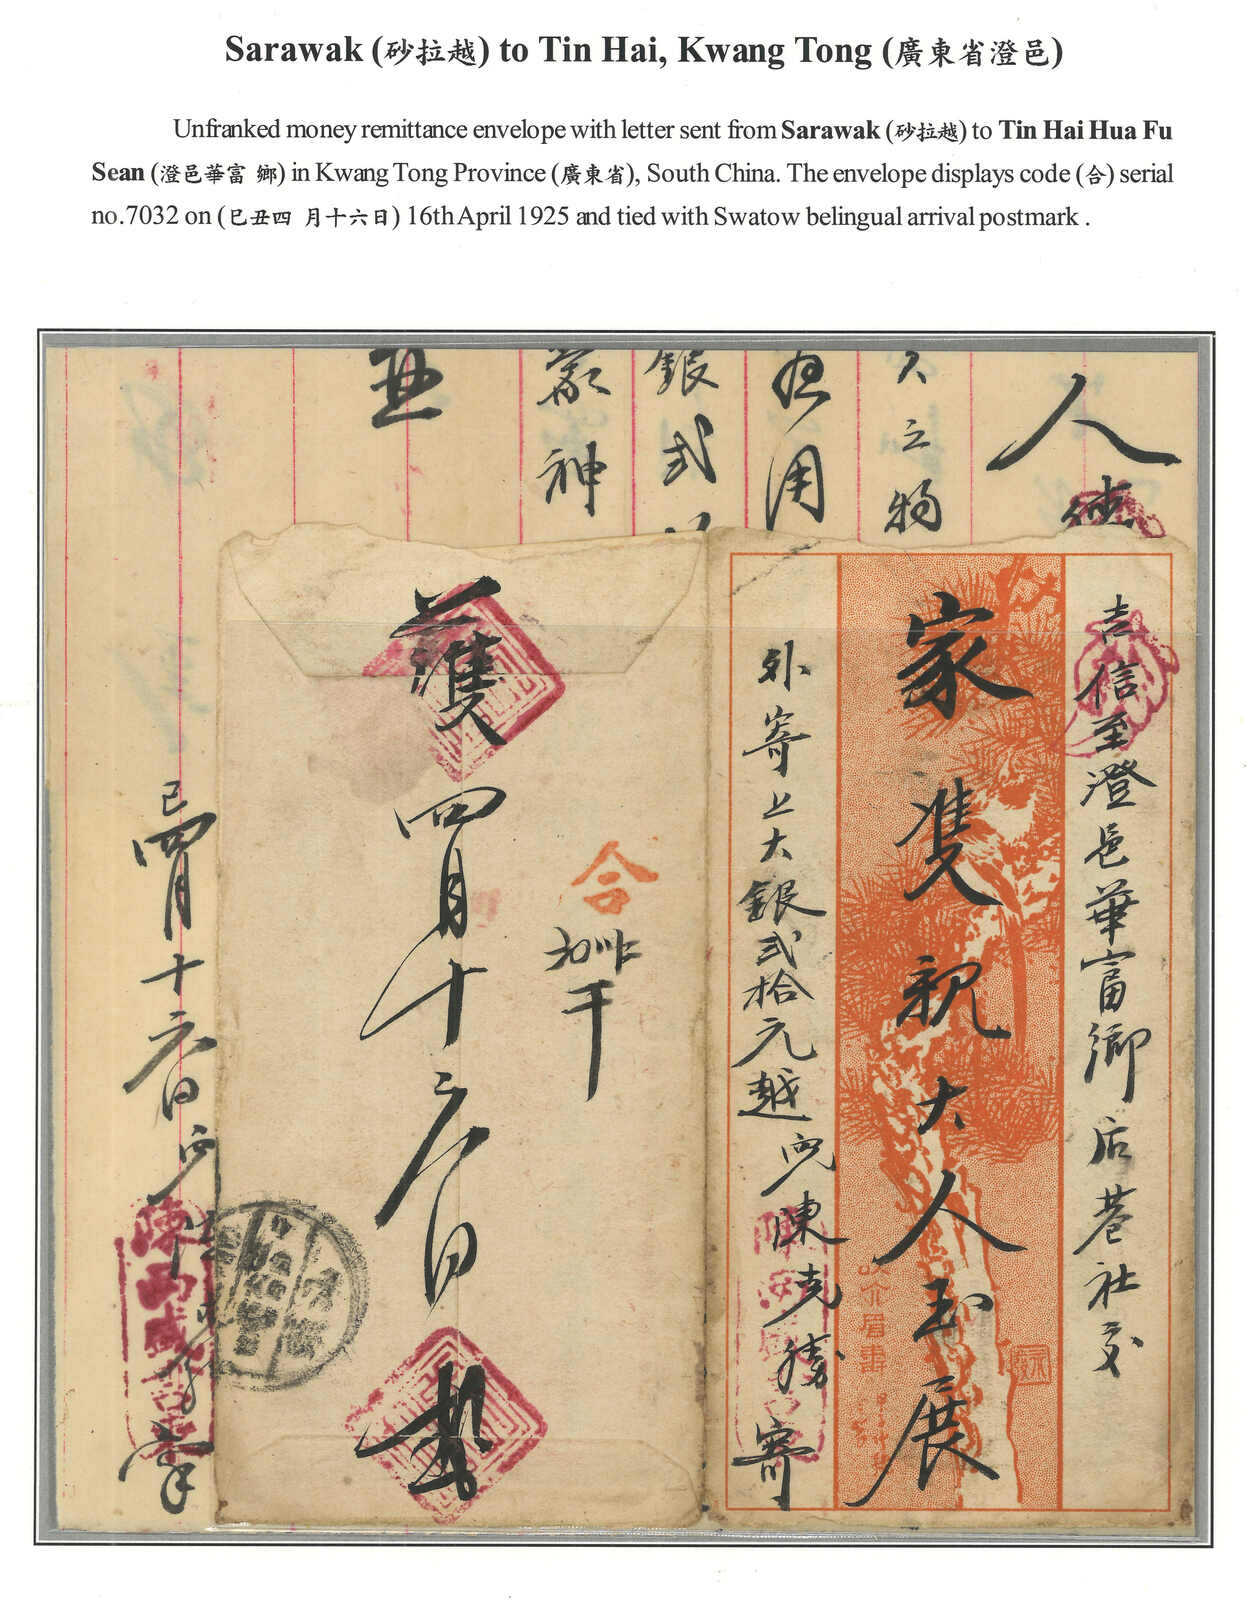 Sarawak (砂拉越) to Tin Hai, Kwang Tong (廣東省澄邑)
Unfranked money remittance envelope with letter sent from Sarawak (砂拉越) to Tin Hai Hua Fu
Sean (澄邑華富 鄉) in Kwang Tong Province (廣東省), South China. The envelope displays code (合) serial
no.7032 on (已丑四 月十六日) 16th April 1925 and tied with Swatow belingual arrival postmark .
人
人之物
用
銀式
神
吉信至澄邑華富鄉后巷社交
家雙親大人玉展
外寄上大銀弍拾元越兒陳克勝寄
四月十六日
合
千
已四月十六日
陳